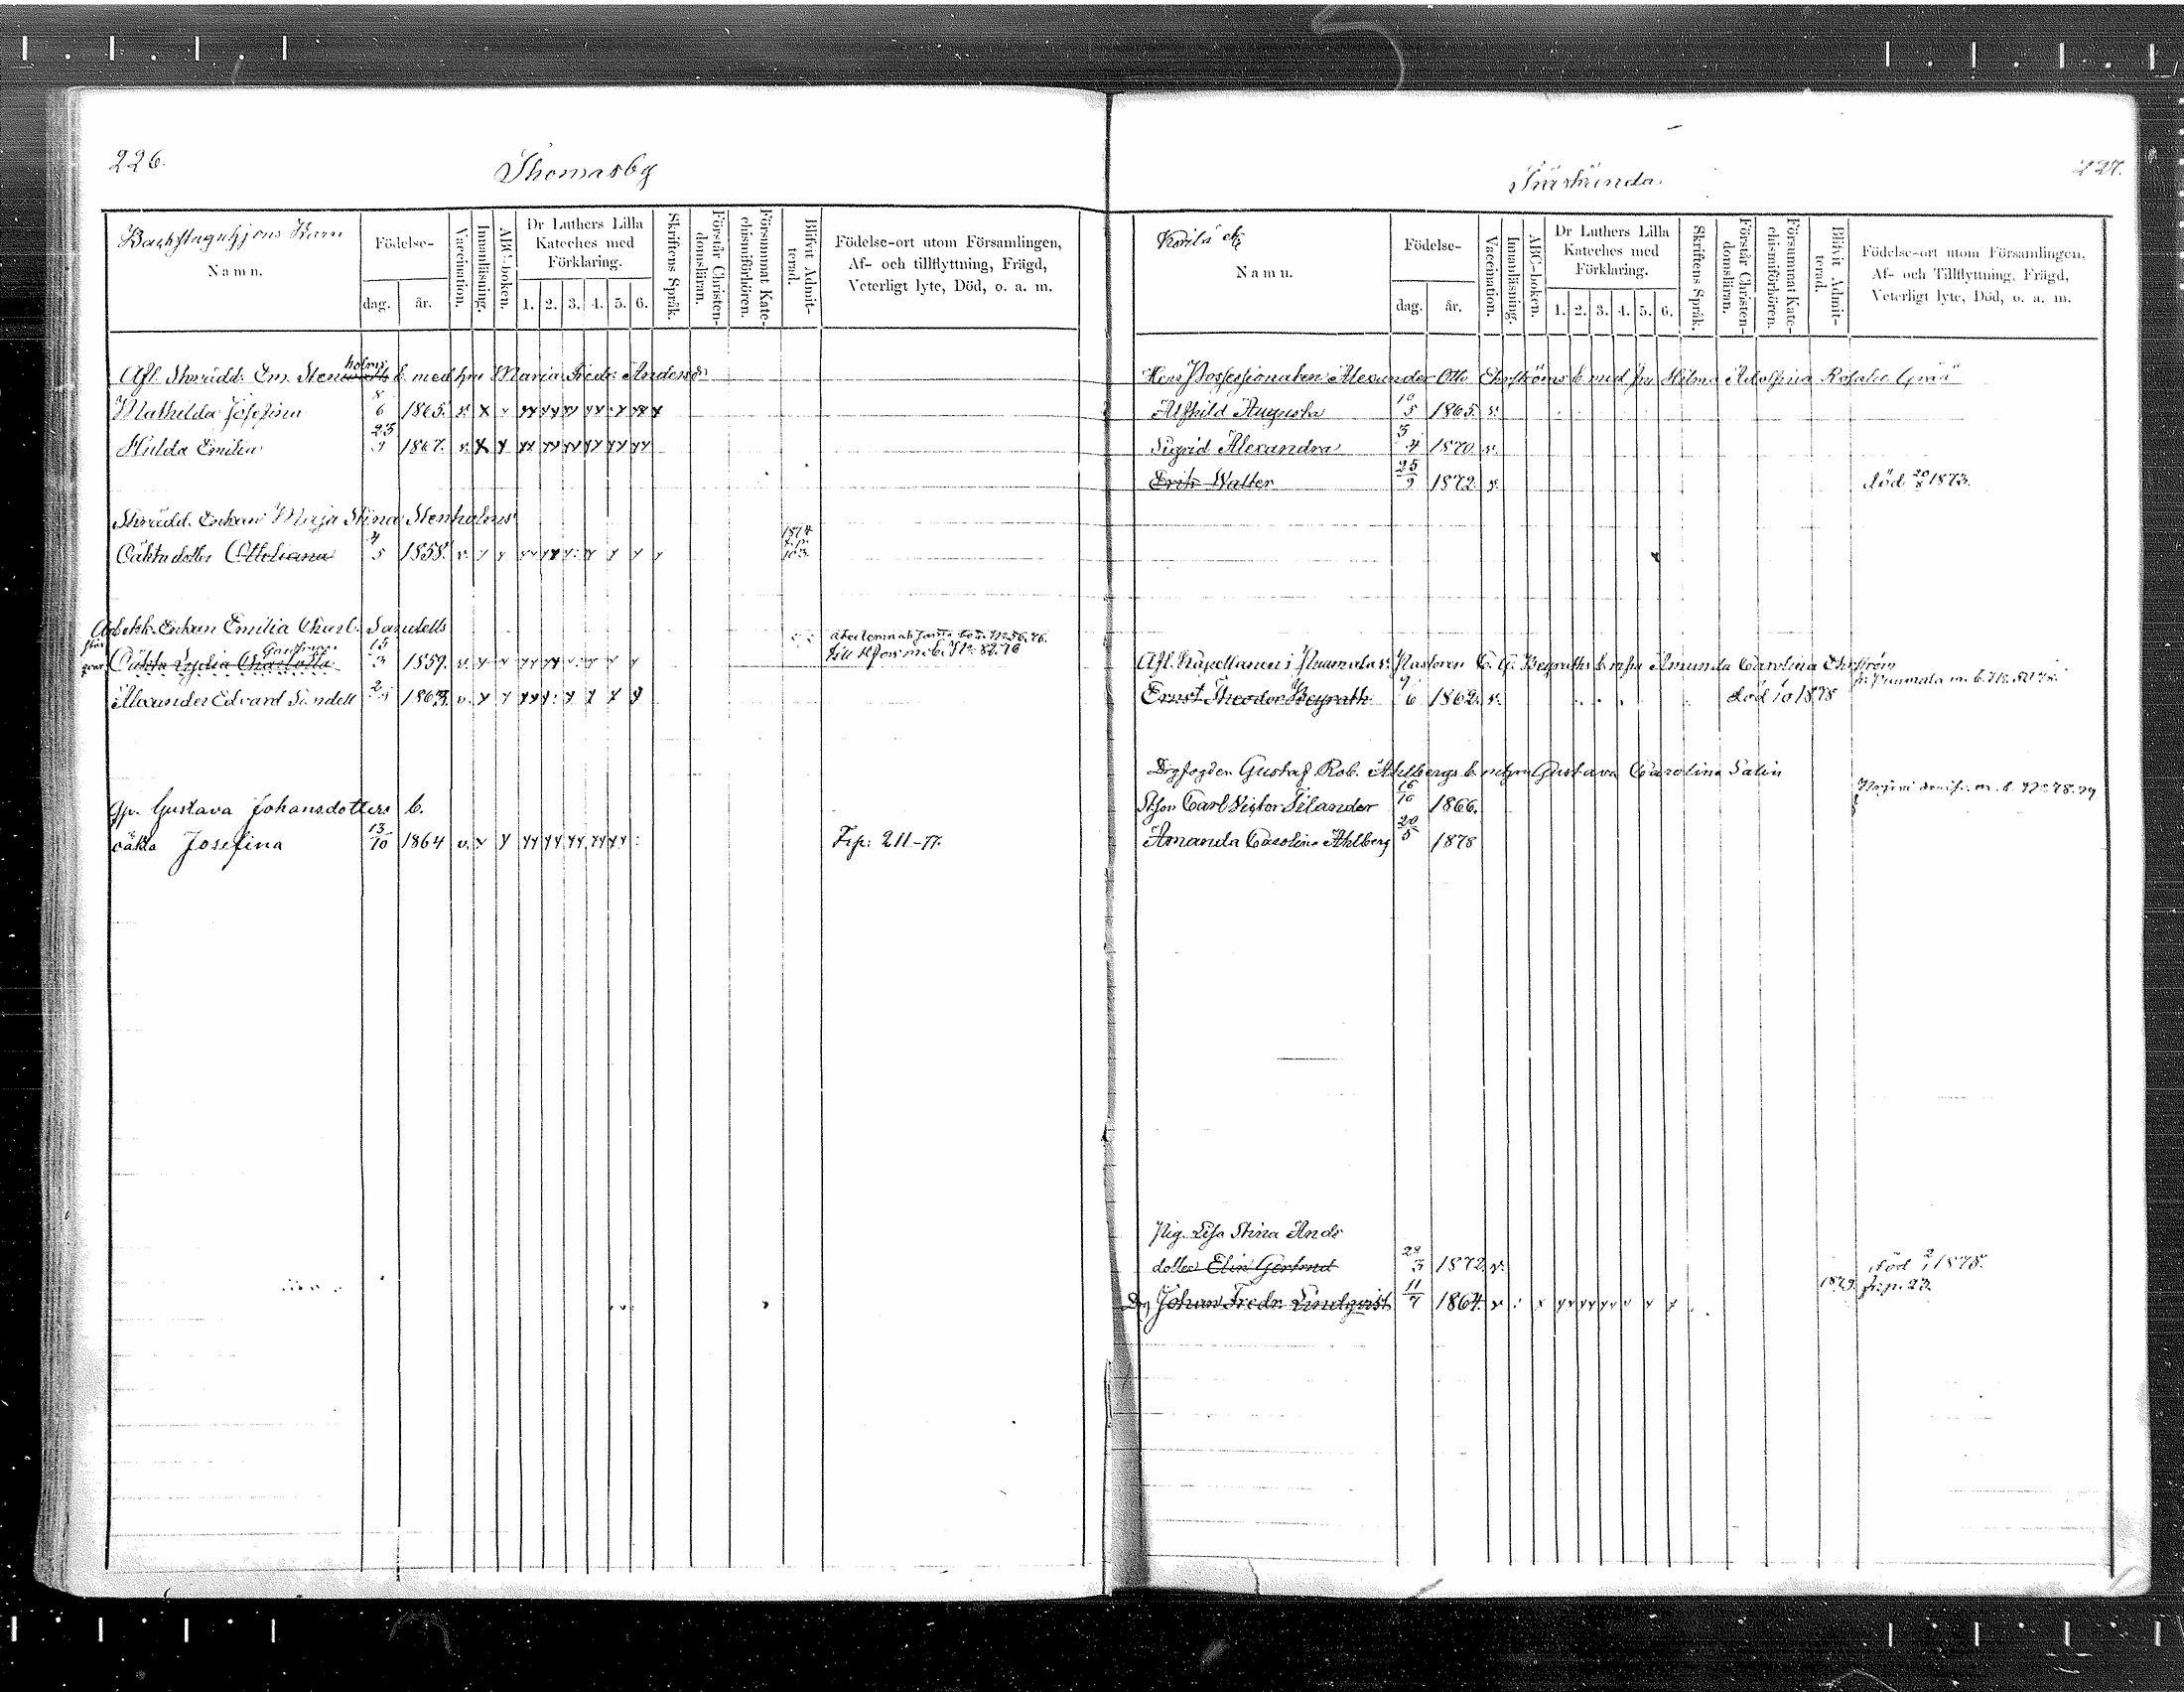 226.
Thomasby
Namn.
Födelse-
dag. år.
Vaccination.
Innanläsning.
ABC-boken.
Dr Luthers Lilla
Kateches med
Förklaring.
1. 2. 3. 4. 5. 6.
Skriftens Språk.
Förstår Christen-
domsläran.
Försummat Kate-
chismiförhören.
Blifvit Admit-
terad.
Födelse-ort utom Församlingen,
Af- och tillflyttning, Frägd,
Veterligt lyte, Död, o. a. m.
Afl. Skrädd. Em. Stenholms b. med hu Maria Fredr. Andersdr
Mathilda Josefina 8/6 1865. v.
Hulda Emilia 23/3 1867. v.
Skrädd. Enkan Maja Stina Stenholms
Oäkta dotter Ottiliana 4/5 1858. v. 1874
Enkan Emilia Charl. Sandells
Oäkta Lydia Charlotta 15/3 1859. v.
Alexander Edvard Sandell 1863. v.
Gp. Gustava Johansdotters b.
oäkta Josefina 13/10 1864 v. Frp: 211-77.
227.
Namn.
Födelse-
dag. år.
Vaccination.
Innanläsning.
ABC-boken.
Dr Luthers Lilla
Kateches med
Förklaring.
1. 2. 3. 4. 5. 6.
Skriftens Språk.
Förstår Christen-
domsläran.
Försummat Kate-
chismiförhören.
Blifvit Admit-
terad.
Födelse-ort utom Församlingen,
Af- och Tillflyttning, Frägd,
Veterligt lyte, Död, o. a. m.
Possessionaten Alexander Otto Ehrströms b. med fru Hilma Adolfina Rosalie
Alfhild Augusta 10/5 1865. v.
Sigrid Alexandra 3/4 1870. v.
Erik Walter 25/9 1872. v. död 20/8 1873.
Afl. Kapellanen i Puumala v. Pastoren C. G. Begraths b. m fru Amanda Carolina Ehrström
fr. Puumala m. b.
Ernst Theodor Beyrath 9/6 1862. v. död 1878
Gustaf Rob. Ahlbergs b. m hu Gustava Carolina Salin
Carl Victor Silander 16/10 1866.
Amanda Carolina Ahlberg 20/5 1878
Pig. Lisa Stina Ands
dotter Elin Gertrud 29/3 1872. v. död 2/1 1875.
Johan Fredr. Lindqvist 11/7 1864. v. 1879. fr. p. 23.